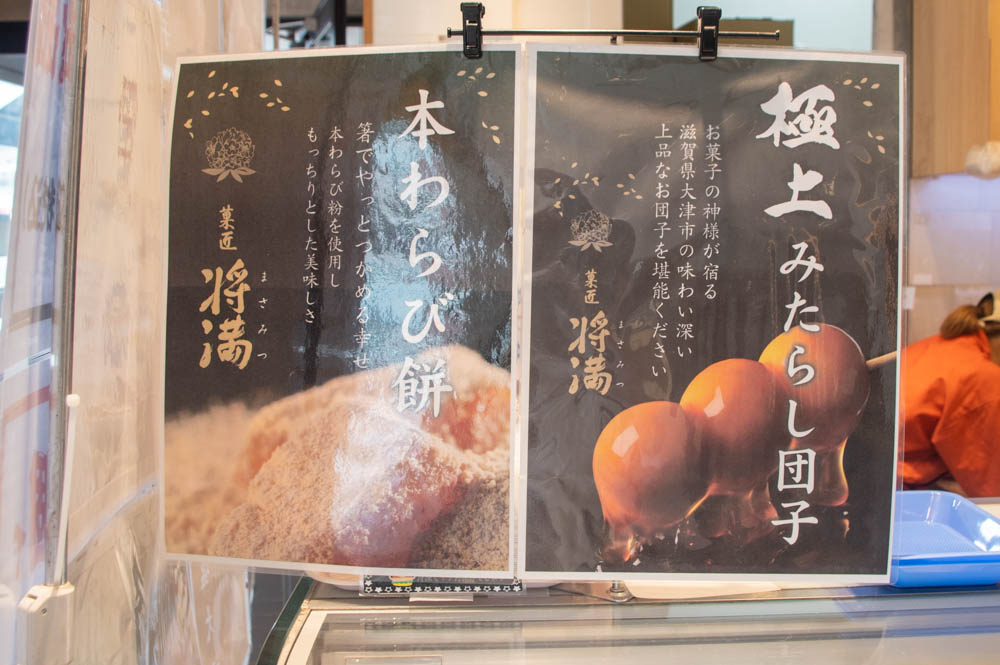 極上みたらし団子
お菓子の神様が宿る
滋賀県大津市の味わい深い
上品なお団子を堪能ください
菓匠
将満
まさみつ
本わらび餅
箸でやっとつかめる幸せ
本わらび粉を使用し
もっちりとした美味しさ
菓匠
将満
まさみつ